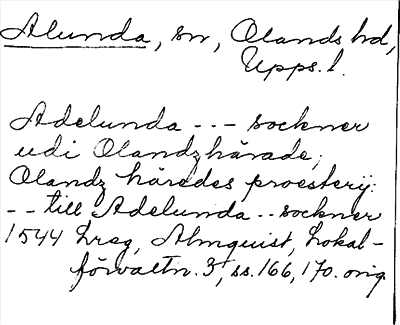 Alunda, sn, Olands hd,
Upps. l.
Adelunda - - - sockner
udi Olandzhårade;
Olandz häredes proesterij:
- - till Adelunda - - sockner
1544 Lreg, Almquist, Lokal-
förvaltn. 3, ss. 166, 170. orig.